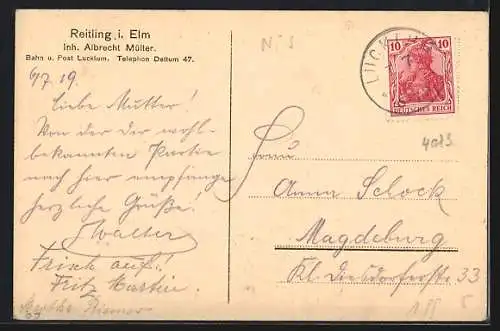 Reitling i. Elm
Inh. Albrecht Müller.
Bahn u. Post Lucklum. Telephon Dettum 47.
6/7 19.
Liebe Mutter!
Von der der wohl-
bekannten Partie
nach hier empfange
herzliche Grüße!
Walter
Frisch auf!
Fritz Martin.
Martha
N: 5
LUCKLUM
10 10
DEUTSCHES REICH
4013
Frau
Anna Schock
Magdeburg
Kl. Diesdorferstr 33